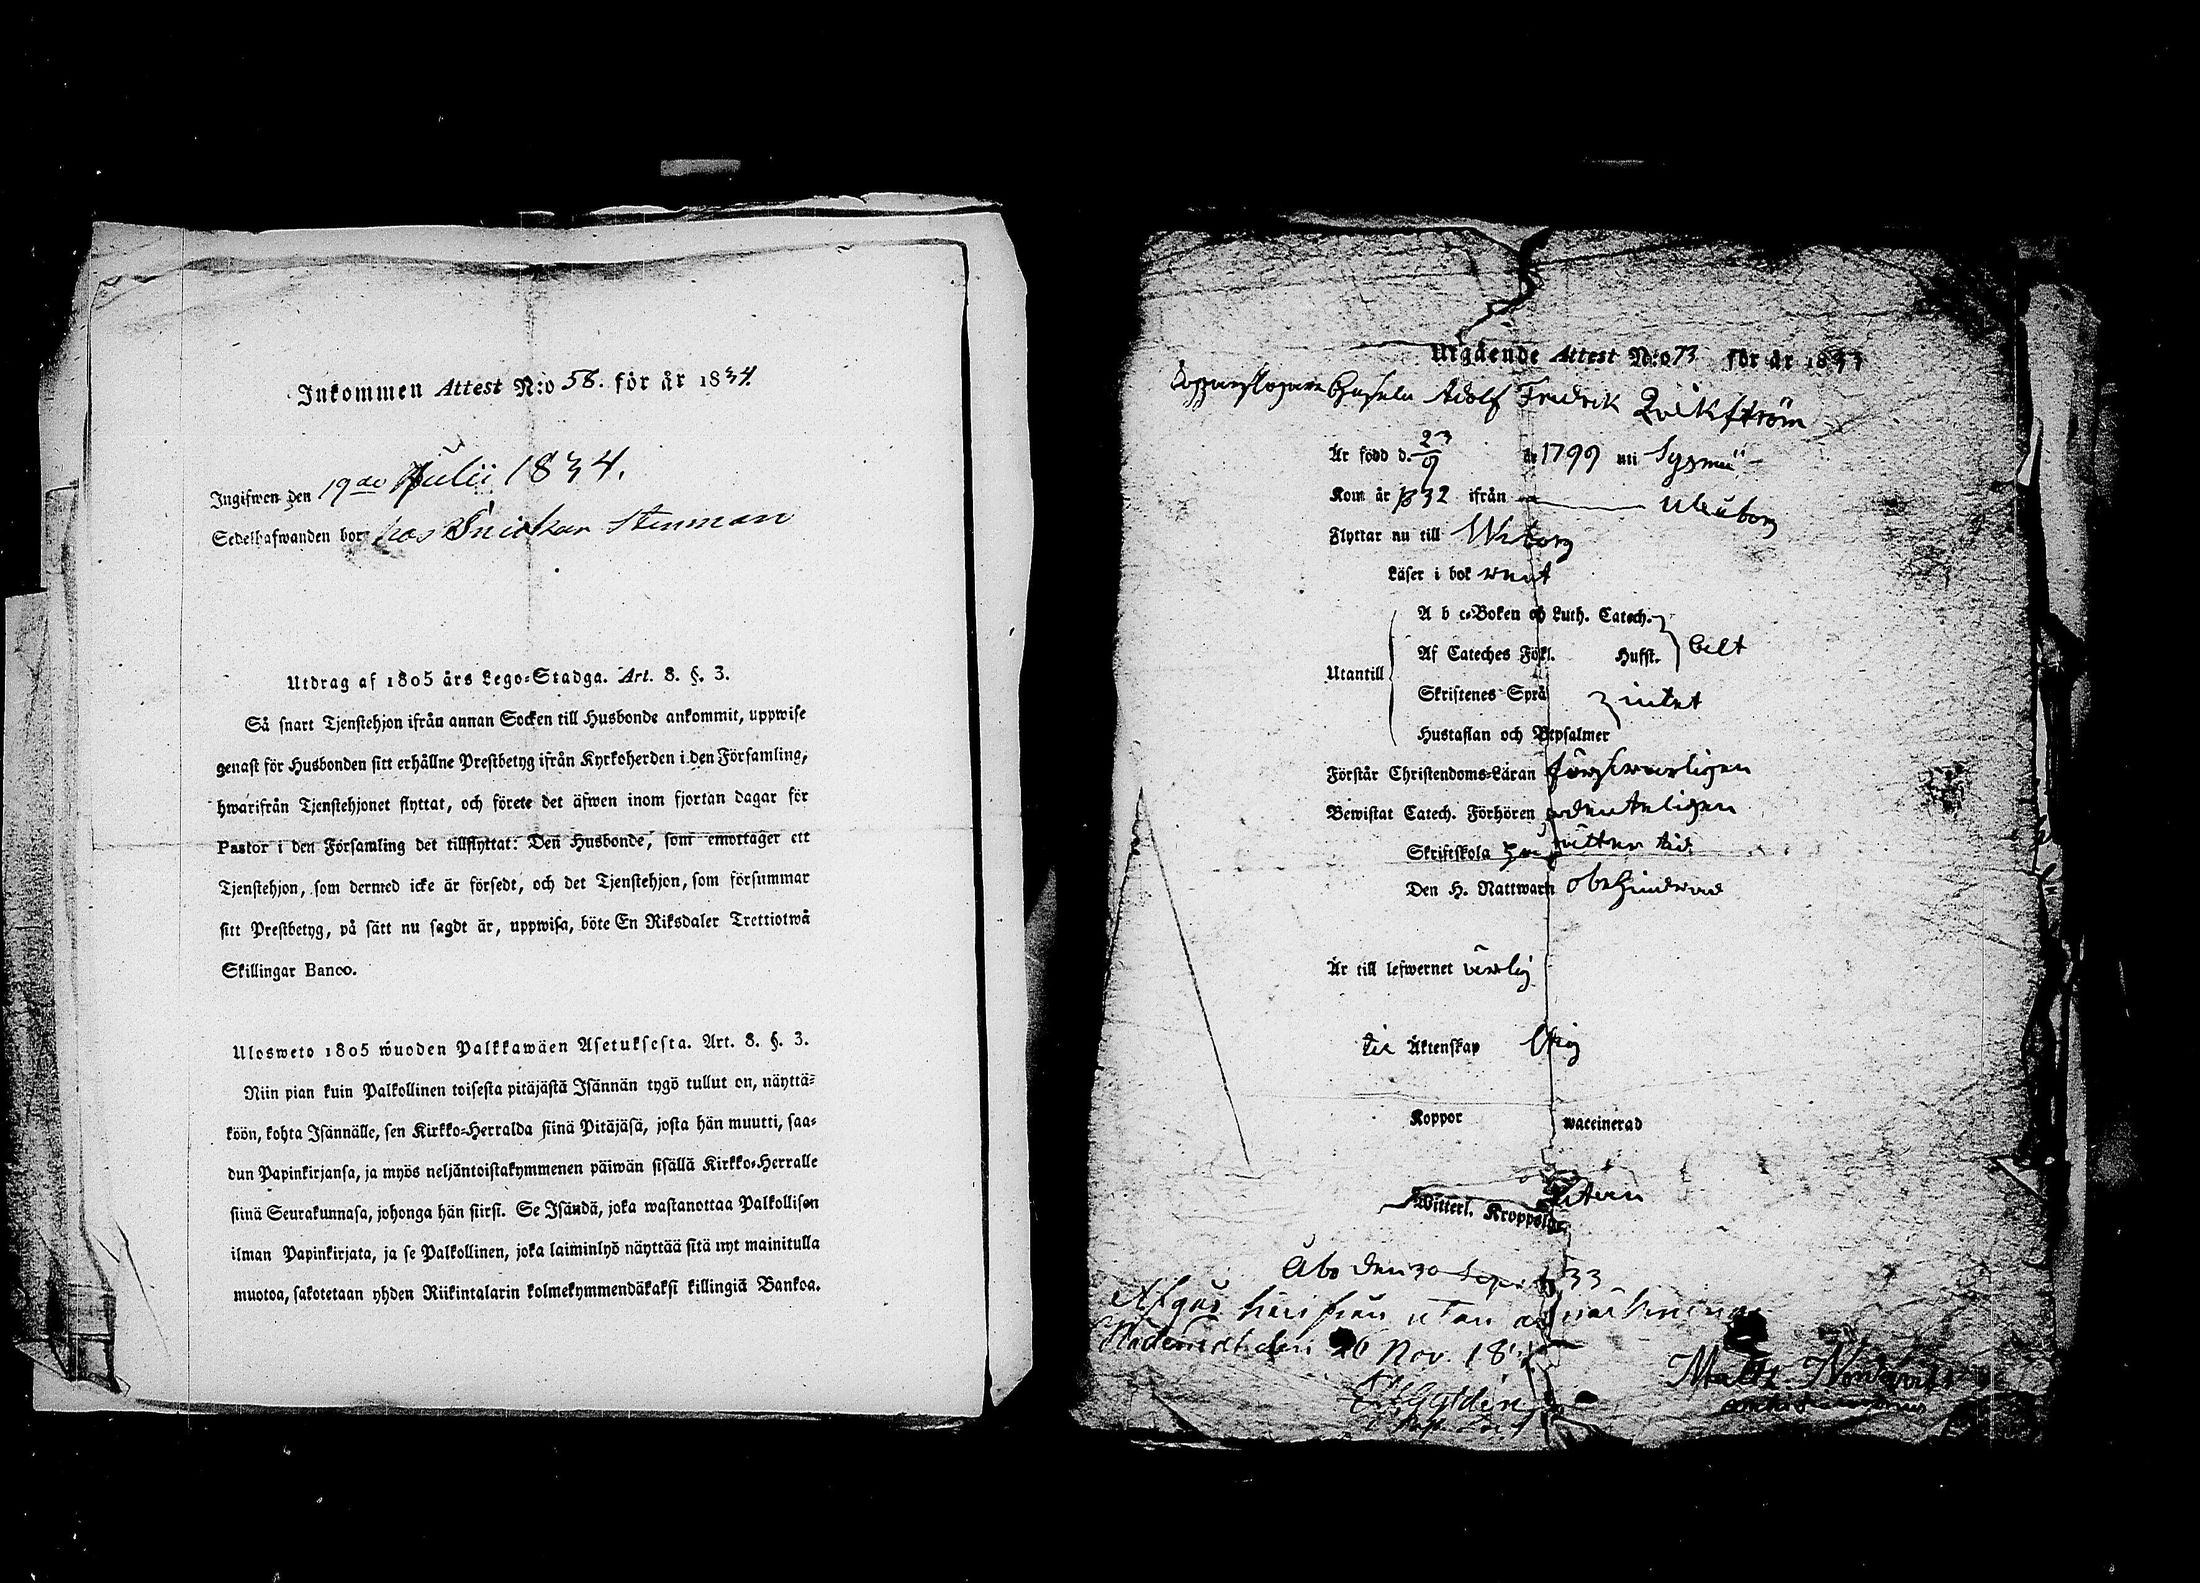 Inkommen Attest N:o 58. för år 1834.
Ingifwen den 19de Julii 1834.
Sedelhafwanden bor hos Snickar Stenman
Utdrag af 1805 års Lego-Stadga. Art. 8. §. 3.
Så snart Tjenstehjon ifrån annan Socken till Husbonde ankommit, uppwise
genast för Husbonden sitt erhållne Prestbetyg ifrån Kyrkoherden i den Församling,
hwarifrån Tjenstehjonet flyttat, och förete det äfwen inom fjortan dagar för
Pastor i den Församling det tillflyttat: Den Husbonde, som emottager ett
Tjenstehjon, som dermed icke är försedt, och det Tjenstehjon, som försummar
sitt Prestbetyg, på sätt nu sagdt är, uppwisa, böte En Riksdaler Trettiotwå
Skillingar Banco.
Ulosweto 1805 wuoden Palkkawäen Asetuksesta. Art. 8. §. 3.
Niin pian kuin Palkollinen toisesta pitäjästä Isännän tygö tullut on, näyttä-
köön, kohta Isännälle, sen Kirkko-Herralda siinä Pitäjäsä, josta hän muutti, saa-
dun Papinkirjansa, ja myös neljäntoistakymmenen päiwän sisällä Kirkko-Herralle
siinä Seurakunnasa, johonga hän siirsi. Se Isändä, joka wastanottaa Palkollisen
ilman Papinkirjata, ja se Palkollinen, joka laiminlyö näyttää sitä nyt mainitulla
muotoa, sakotetaan yhden Riikintalarin kolmekymmendäkaksi killingiä Bankoa.
Utgående Attest N:o 73 för år 1833
Gesäln Adolf Fredrik Qvikström
Är född d. 23/9 år 1799 uti Sysmä
Kom år 1832 ifrån Uleåborg
Flyttar nu till Wiborg
Läser i bok rent
A b c-Boken och Luth. Catech.
Af Cateches Förkl. Hufst. helt
Utantill
Skriftenes Språk intet
Hustaflan och Botpsalmer
Förstår Christendoms-Läran försvarligen
Bewistat Catech. Förhören ordenteligen
Skriftskola tid
Den H. Nattward obehindrad
Är till lefwernet ärlig
till Äktenskap ledig
Koppor waccinerad
Witterl. Kroppslyte
Åbo den 30 Sept 33
Afgås härifrån utan anmärkning
den 26 Nov. 18
Gyldén
Matts